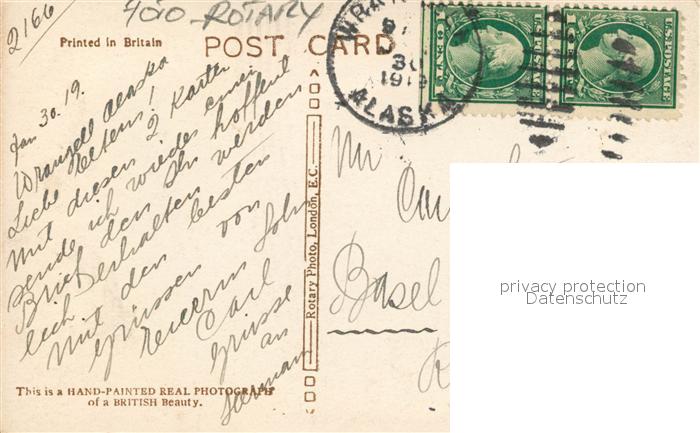 2166
4010-ROTARY
Printed in Britain
POST CARD
WRAN
30
191
ALASKA
U.S. POSTAGE
U.S. POSTAGE
Jan 30. 19.
Wrangell Alaska
Liebe Eltern!
Mit diesen 2 Karten
sende ich wieder einen
Brief den Ihr hoffent
lich erhalten werden
Mit den besten
Grüssen von
Eurem Sohn
Carl
Grüsse
an
Herman
Rotary Photo, London, E.C.
Mr
Car
Basel
This is a HAND-PAINTED REAL PHOTOGRAPH
of a BRITISH Beauty.
privacy protection
Datenschutz